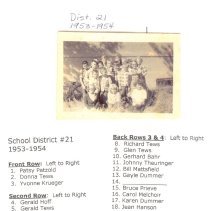 Dist. 21
1953-1954
School District #21
1953-1954
Front Row: Left to Right
1. Patsy Patzold
2. Donna Tews
3. Yvonne Krueger
Second Row: Left to Right
4. Gerald Hoff
5. Gerald Tews
Back Rows 3 & 4: Left to Right
8. Richard Tews
9. Glen Tews
10. Gerhard Bahr
11. Johnny Thauringer
12. Bill Mattsfield
13. Gayle Dummer
14.
15. Bruce Prieve
16. Carol Melchoir
17. Karen Dummer
18. Jean Hanson